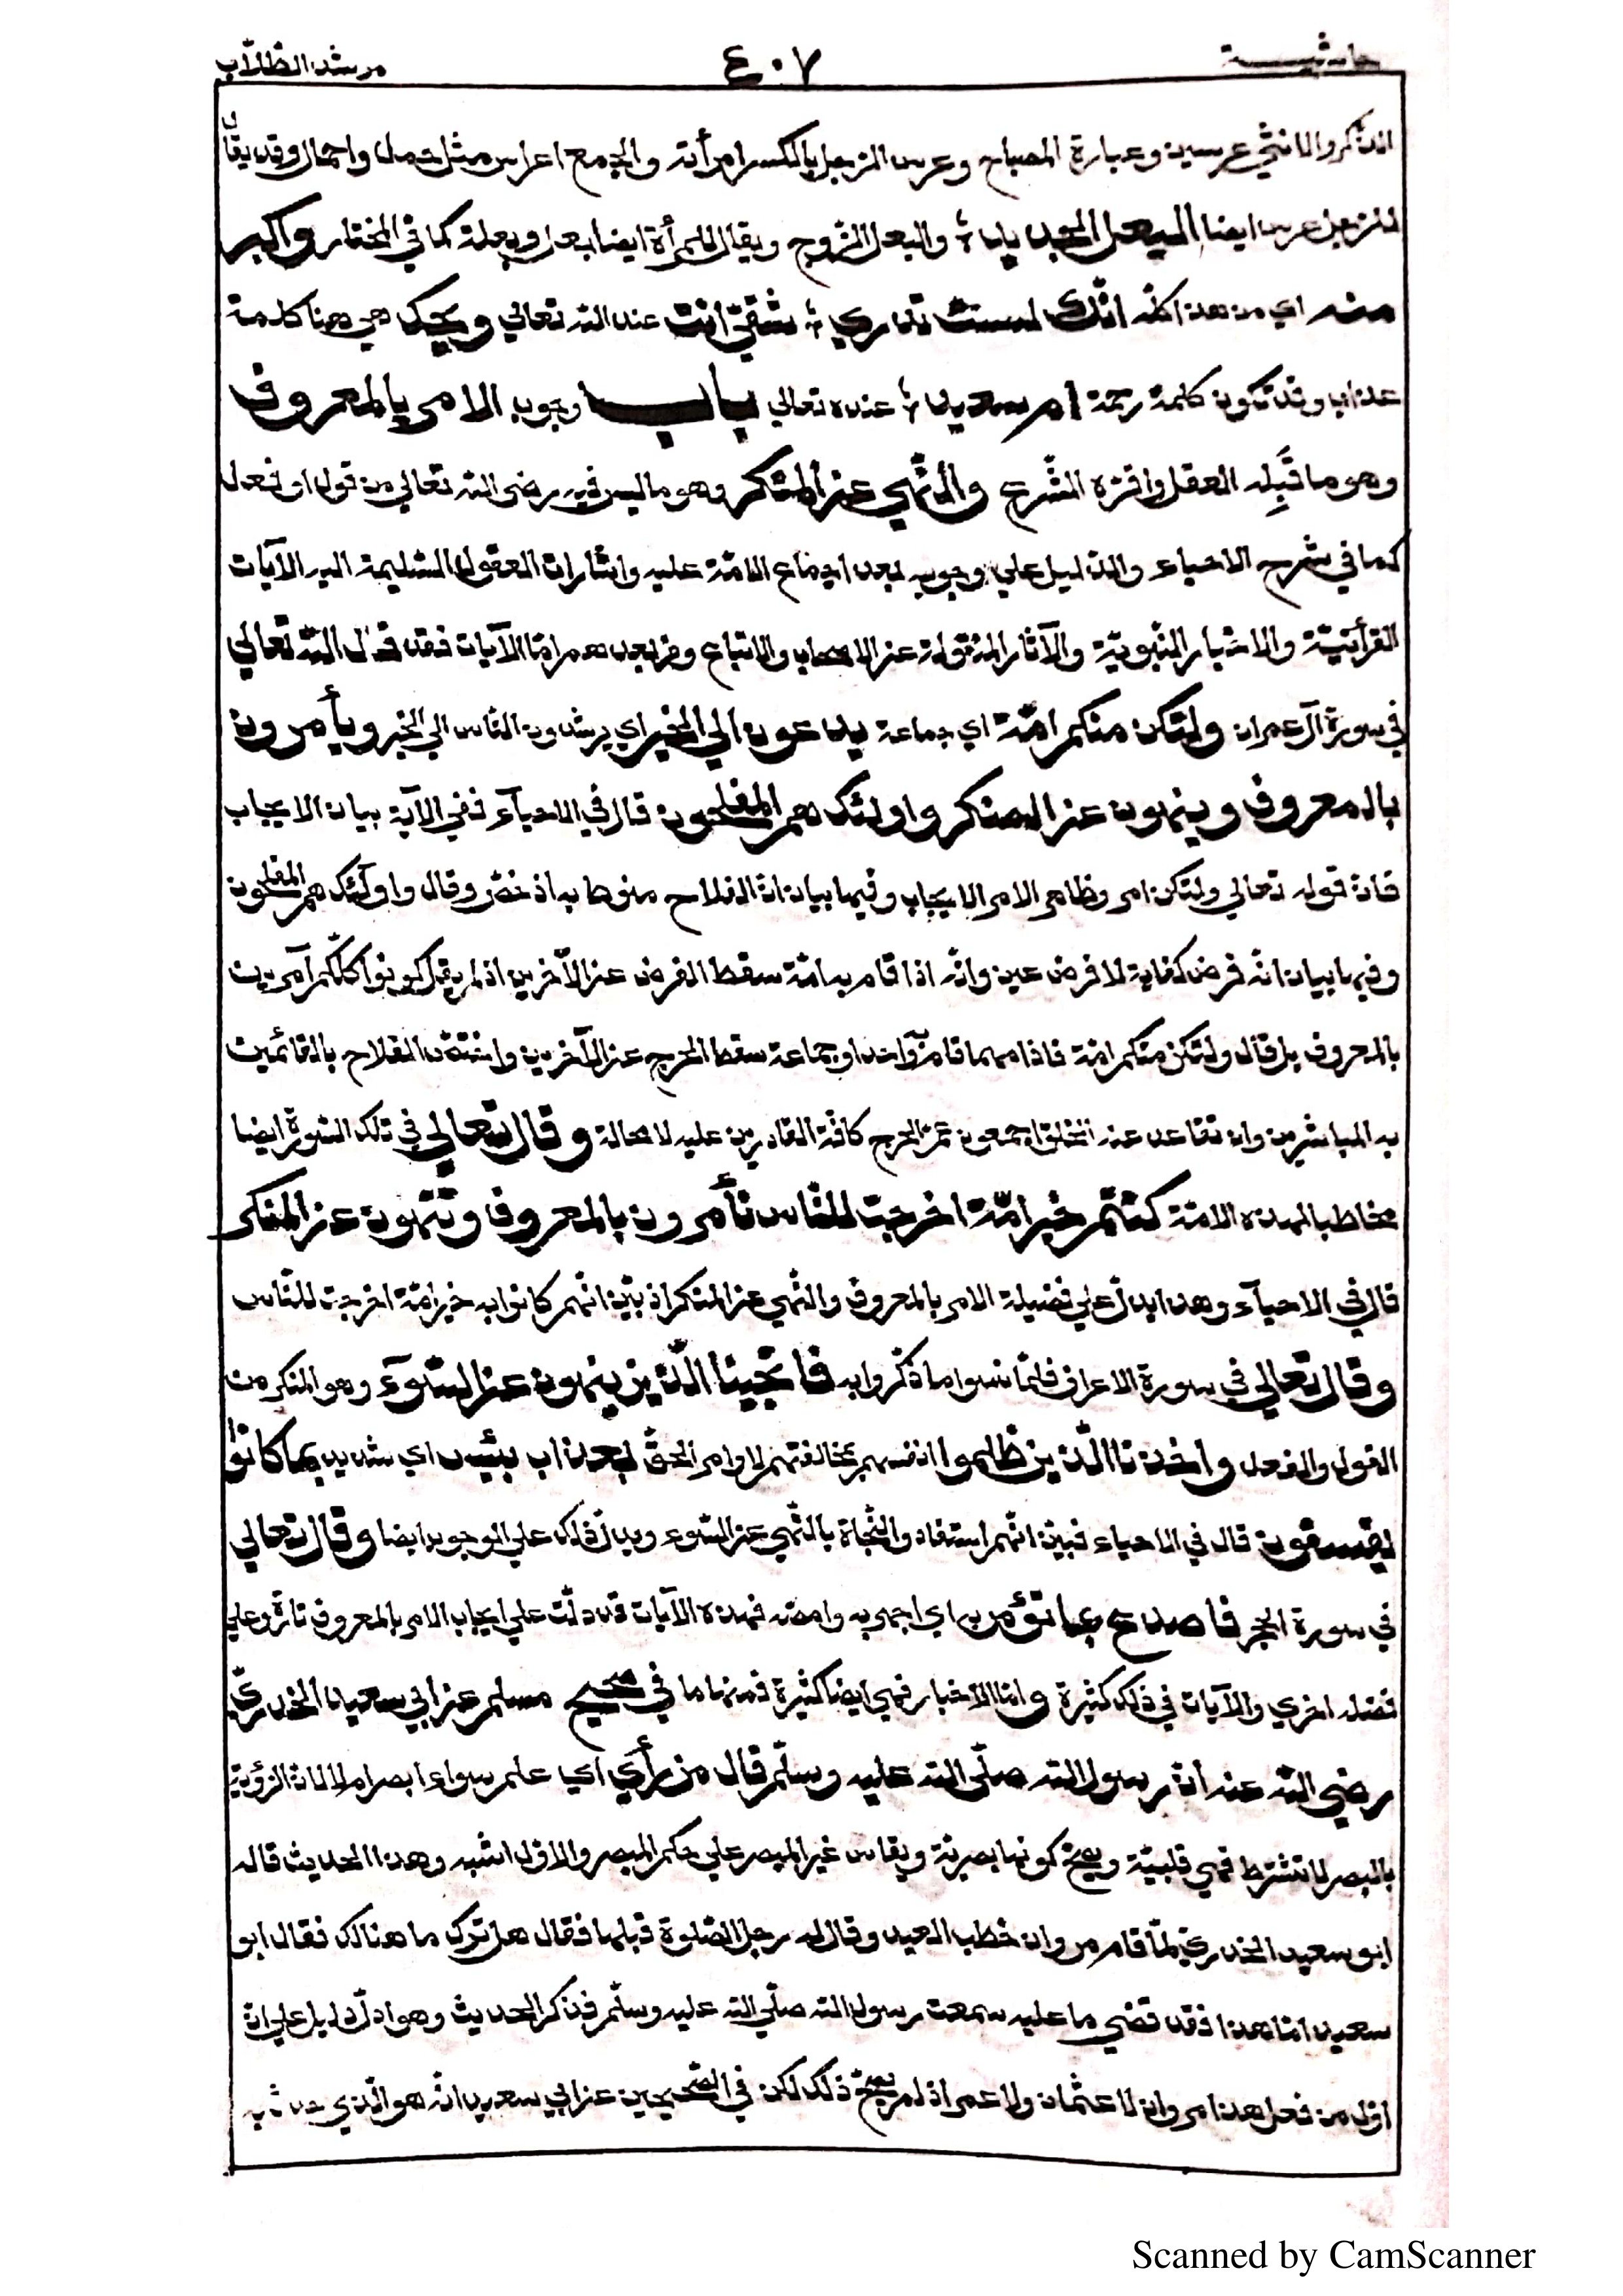 حاشيـــة ٤٠٧ مرشد الطّلّاب
الذّكر والانثي عرسين وعبارة المصباح وعرس الرّجل بالكسر امرأته والجمع اعراس مثل حمل واحمال وقد يقال
للرّجل عرس ايضا البعل والبعل الزّوج ويقال للمرأة ايضا بعل وبعلة كما في المختار واكبر
منه اي من هذا كلّه انّك لست تدري شقيّ انت عند الله تعالي ويحك هي هنا كلمة
عذاب وقد تكون كلمة رحمة ام سعيد عنده تعالي بـاب وجوب الامر بالمعروف
وهو ما قَبِله العقل واقرّه الشّرع والنّهي عن المنكر وهو ما ليس فيه رضي الله تعالي من قول او فعل
كما في شرح الاحياء والدّليل علي وجوبه بعد اجماع الامّة عليه واشارات العقول السّليمة اليه الآيات
القرأنيّة والاخبار النّبويّة والآثار المنقولة عن الاصحاب والاتباع ومن بعدهم امّا الآيات فقد قال الله تعالي
في سورة آل عمران ولتكن منكم امّة اي جماعة يدعون الي الخير اي يرشدون النّاس الي الخير ويأمرون
بالمعروف وينهون عن المنكر واولئك هم المفلحون قال في الاحيآء ففي الآية بيان الايجاب
فانّ قوله تعالي ولتكن امر وظاهر الامر الايجاب وفيها بيان انّ الفلاح منوط به اذ خصّ وقال واولٓئك هم المفلحون
وفيها بيان انّه فرض كفاية لا فرض عين وانّه اذا قام به امّة سقط الفرض عن الآخرين اذ لم يقل كونوا كلّكم آمرين
بالمعروف بل قال ولتكن منكم امّة فاذا مهما قام به واحد او جماعة سقط الحرج عن الآخرين واختصّ الفلاح بالقائمين
به المباشرين وان تقاعد عنه الخلق اجمعون عمّ الحرج كافّة القادرين عليه لا محالة وقال تعالي في تلك السّورة ايضا
مخاطبا لهذه الامّة كنتم خير امّة اخرجت للنّاس تأمرون بالمعروف وتنهون عن المنكر
قال في الاحيآء وهذا يدلّ علي فضيلة الامر بالمعروف والنّهي عن المنكر اذ بيّن انّهم كانوا به خير امّة اخرجت للنّاس
وقال تعالي في سورة الاعراف فلمّا نسوا ما ذكّروا به فانجينا الّذين ينهون عن السّوٓء وهو المنكر من
القول والفعل واخذنا الّذين ظلموا انفسهم بمخالفتهم لاوامر الحقّ بعذاب بئيس اي شديد بما كانوا
يفسقون قال في الاحياء فبيّن انّهم استفادوا النّجاة بالنّهي عن السّوء ويدلّ ذلك علي الوجوب ايضا وقال تعالي
في سورة الحجر فاصدع بما تؤمر به اي اجهر به وامضه فهذه الآيات قد دلّت علي ايجاب الامر بالمعروف تارة وعلي
فضله اخري والآيات في ذلك كثيرة وامّا الاخبار فهي ايضا كثيرة فمنها ما في صحيح مسلم عن ابي سعيد الخدريّ
رضي الله عنه انّ رسول الله صلّي الله عليه وسلّم قال من رأي اي علم سواء ابصر ام لا لانّ الرّؤية
بالبصر لا تشترط فهي قلبيّة ويصحّ كونها بصريّة ويقاس غير المبصر علي حكم المبصر والاوّل اشبه وهذا الحديث قاله
ابو سعيد الخدريّ لمّا قام مروان خطب العيد وقال له رجل الصّلوة قبلها فقال هل ترك ما هنالك فقال ابو
سعيد امّا هذا فقد قضي ما عليه سمعت رسول الله صلّي الله عليه وسلّم فذكر الحديث وهو ادلّ دليل علي انّ
اوّل من فعل هذا مروان لا عثمان ولا عمر اذ لم يصحّ ذلك لكن في الصّحيحين عن ابي سعيد انّه هو الّذي جذب
Scanned by CamScanner